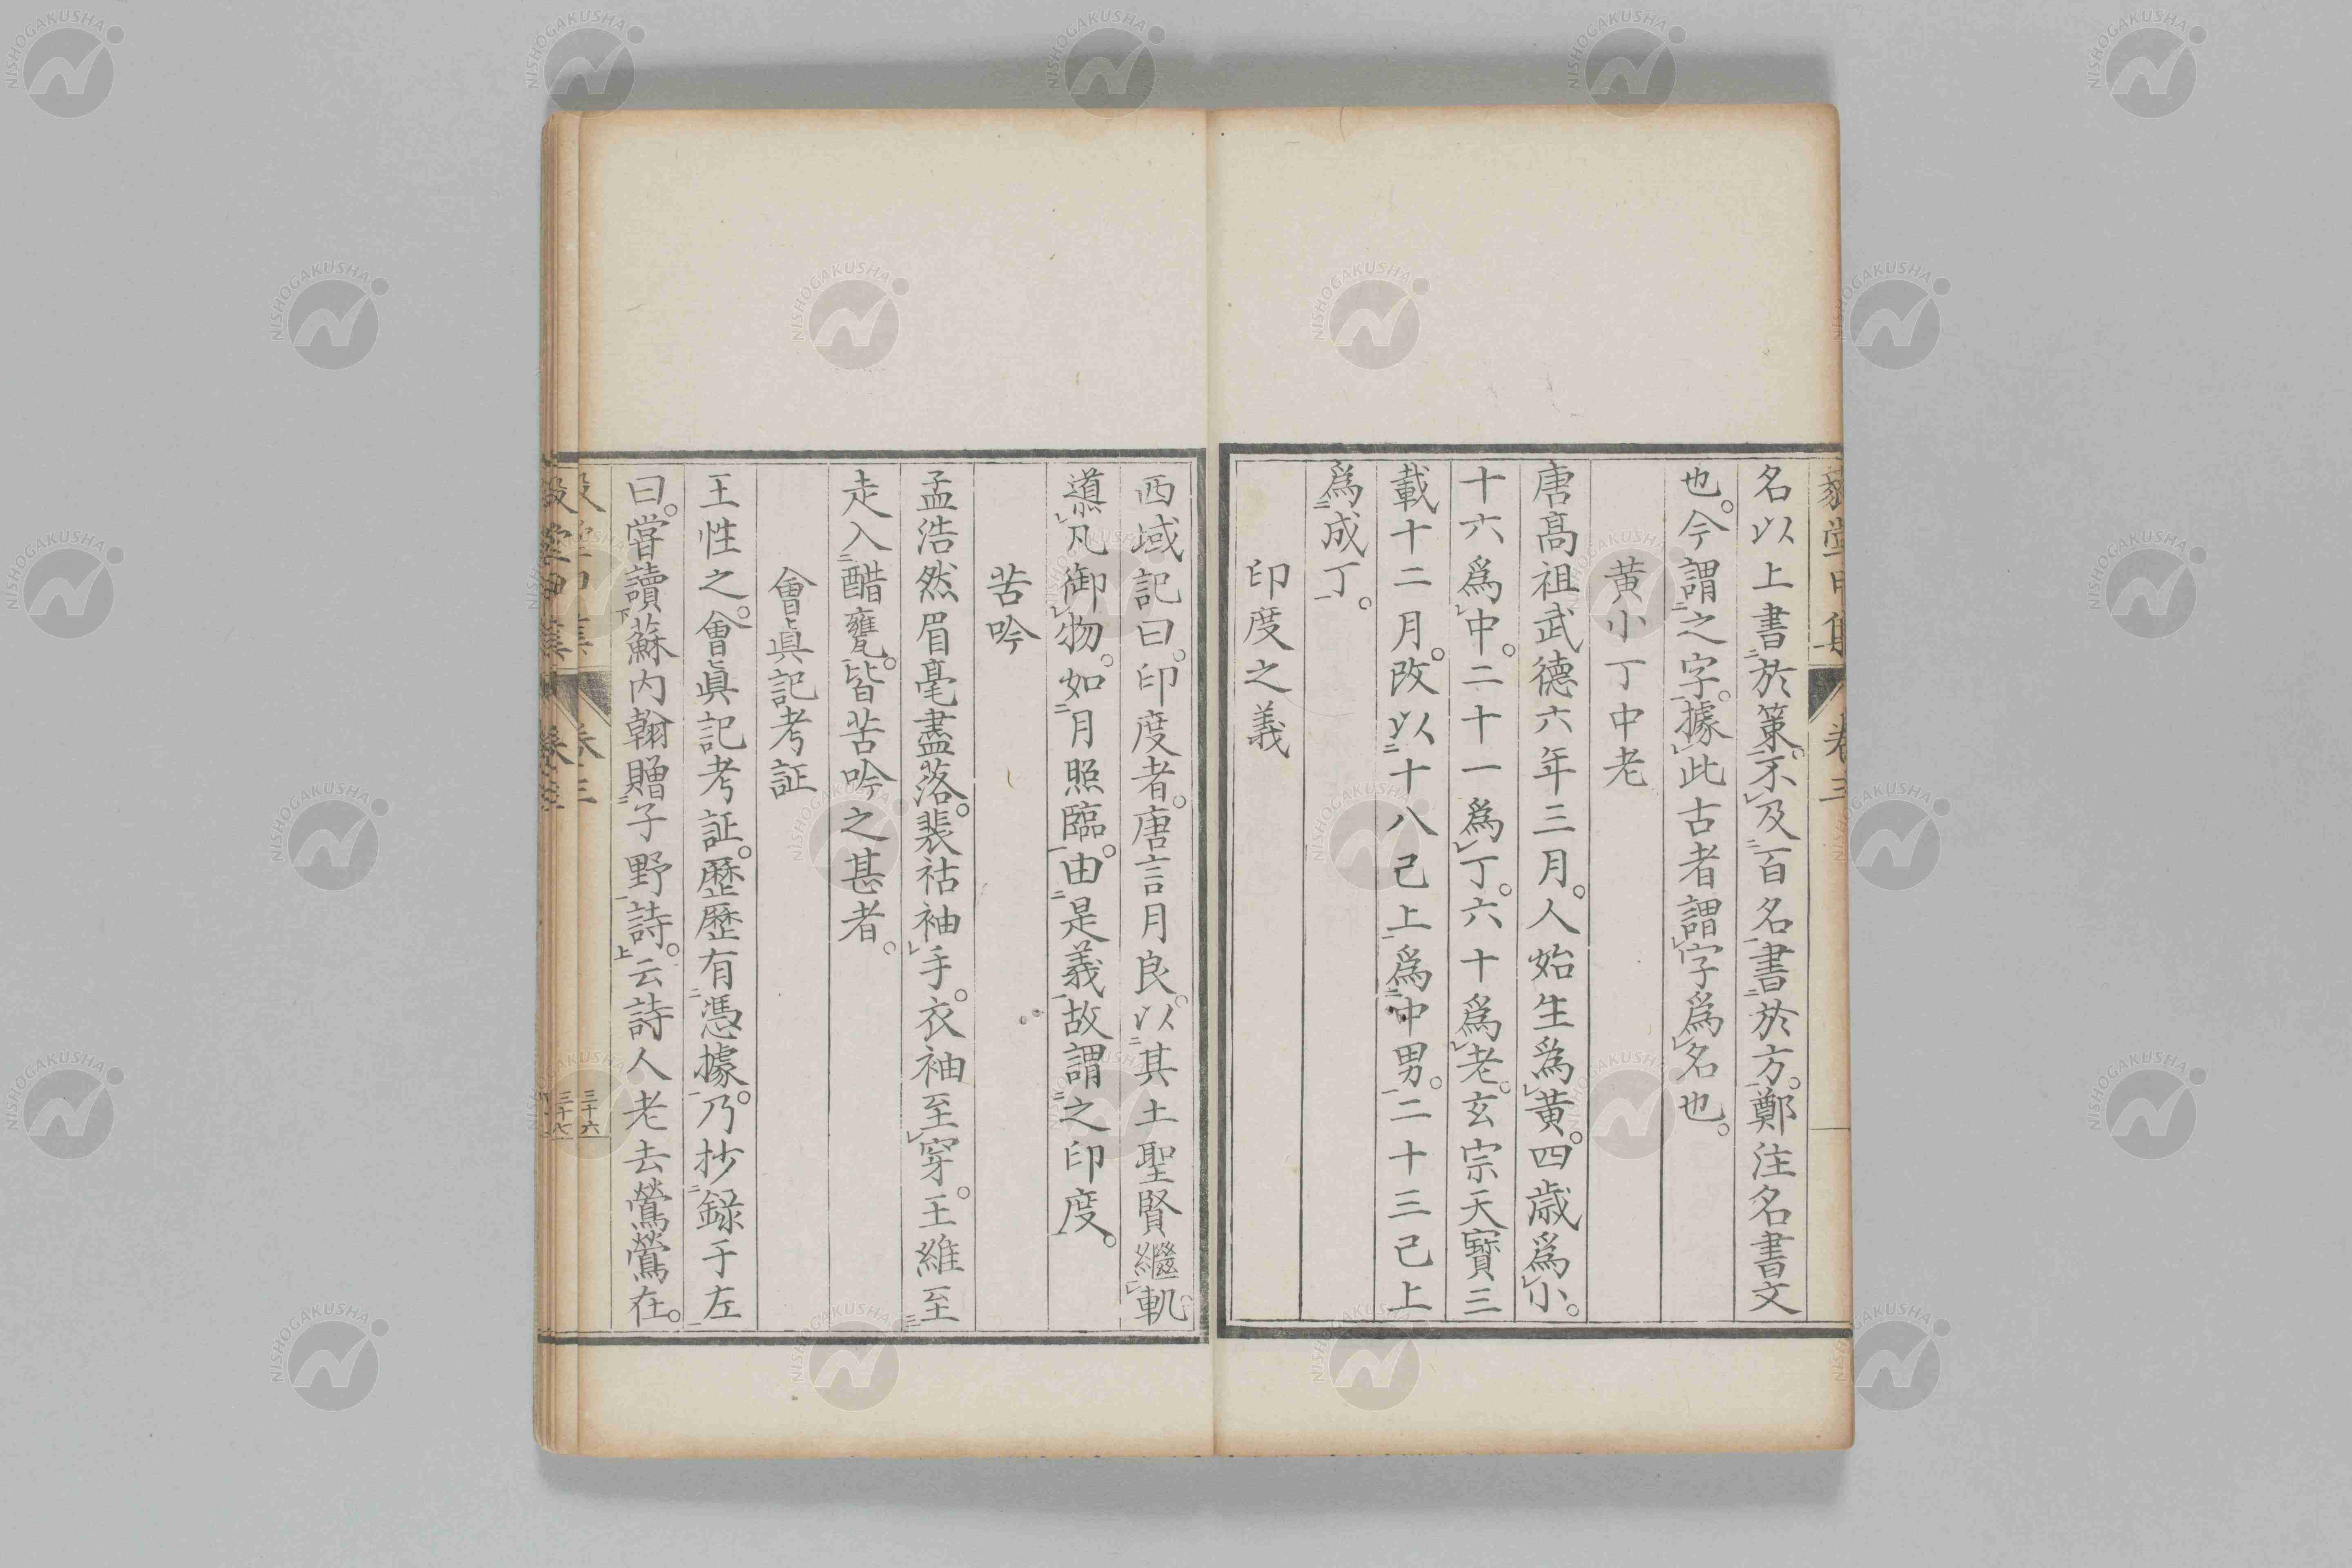 名以上書於策。不及百名書於方。鄭注名書文
也。今謂之字。據此古者謂字爲名也。
黄小丁中老
唐髙祖武德六年三月。人始生爲黄。四歳爲小。
十六爲中。二十一爲丁。六十爲老。玄宗天寳三
載十二月。改以十八已上爲中男。二十三已上
爲成丁。
印度之義
西域記曰。印度者。唐言月良。以其土聖賢繼軌。
導凡御物。如月照臨。由是義故謂之印度。
苦吟
孟浩然眉毫盡落。裴祜袖手。衣袖至穿。王維至
走入醋甕。皆苦吟之甚者。
會眞記考証
王性之。會眞記考証。歴歴有憑據。乃抄録于左
曰。嘗讀蘇内翰贈子野詩。云詩人老去鶯鶯在。
卷三
三十六
NISHOGAKUSHA